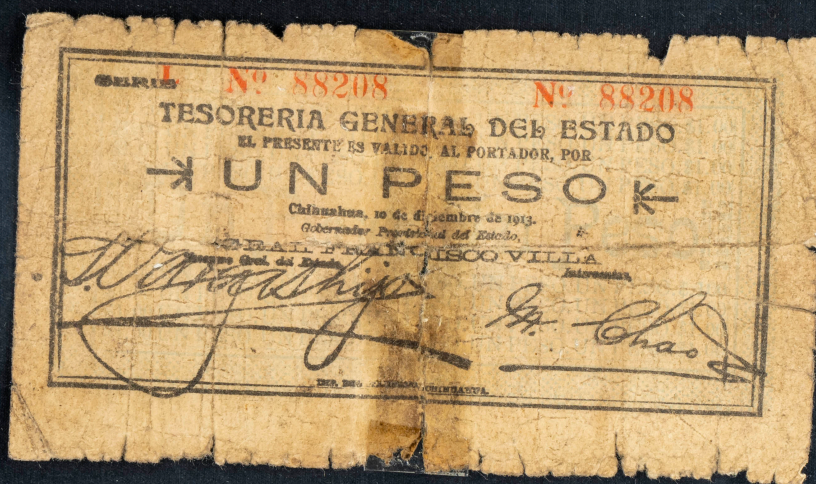 SERIE L Nº 88208 Nº 88208
TESORERIA GENERAL DEL ESTADO
EL PRESENTE ES VALIDO AL PORTADOR, POR
UN PESO
Chihuahua, 10 de diciembre de 1913.
Gobernador Provisional del Estado,
GRAL FRANCISCO VILLA
Tesorero Gral. del Estado, Interventor,
S. Vargas hijo M. Chao
IMP. DEL CHIHUAHUA.